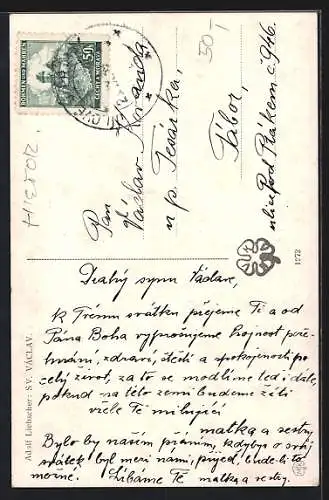 50
BÖHMEN UND MÄHREN
ČECHY A MORAVA
HISTOR.
50,-
Pan
Václav Kalanda
u p. Tesárka,
Tábor,
ulice Pod Ptákem č. 946.
1272
Adolf Liebscher: SV. VÁCLAV.
Drahý synu Václave,
k Tvému svátku přejeme Ti a od
Pána Boha vyprošujeme hojnost požeh-
hnání, zdraví, štěstí a spokojenosti po
celý život, za to se modlíme teď i dále,
pokud na této zemi budeme žíti
vřele Tě milující
matka a sestry.
Bylo by naším přáním, kdyby o svůj
svátek byl mezi námi, přijeď, bude-li to
možné. Líbáme Tě matka a sestry.